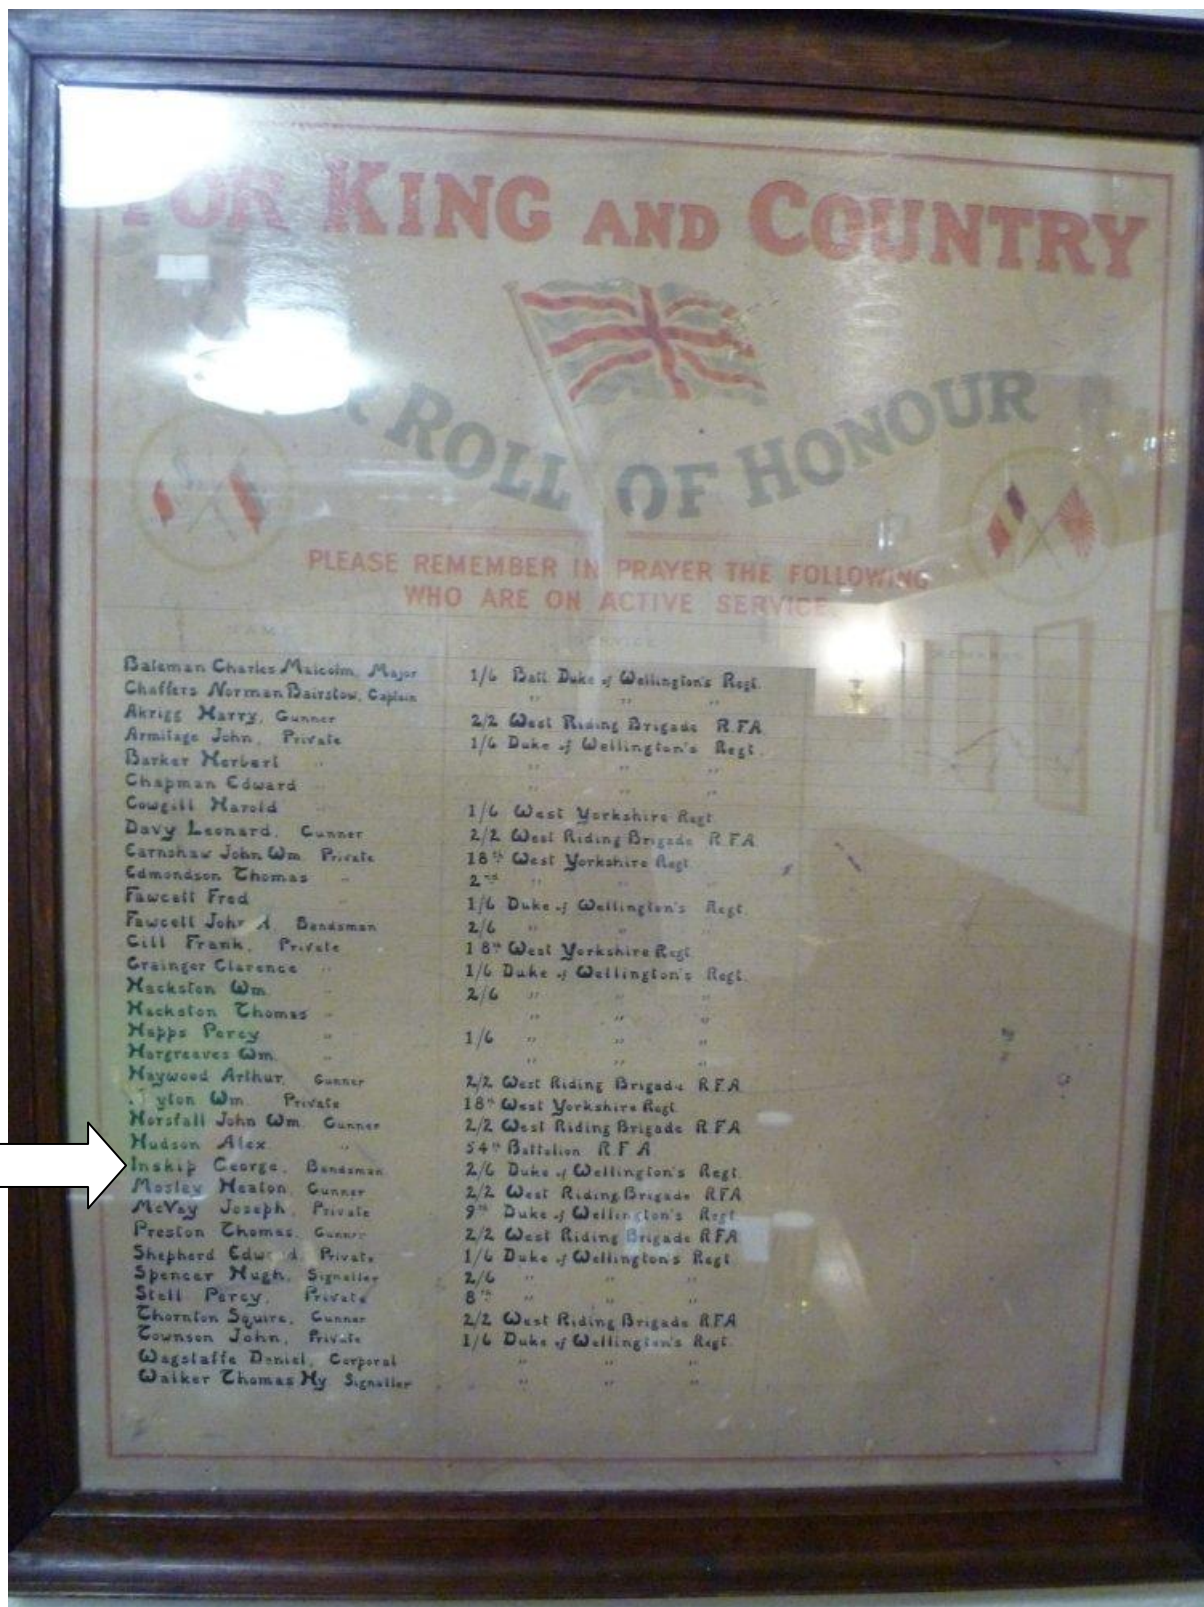 FOR KING AND COUNTRY
ROLL OF HONOUR
PLEASE REMEMBER IN PRAYER THE FOLLOWING
WHO ARE ON ACTIVE SERVICE
NAME SERVICE REMARKS
Bateman Charles Malcolm, Major 1/6 Batt. Duke of Wellington's Regt.
Chaffers Norman Bairstow, Captain " " "
Akrigg Harry, Gunner 2/2 West Riding Brigade R.F.A.
Armitage John, Private 1/6 Duke of Wellington's Regt.
Barker Herbert " " " "
Chapman Edward " " " "
Cowgill Harold " 1/6 West Yorkshire Regt.
Davy Leonard, Gunner 2/2 West Riding Brigade R.F.A.
Earnshaw John Wm. Private 18th West Yorkshire Regt.
Edmondson Thomas " 2nd " " "
Fawcett Fred " 1/6 Duke of Wellington's Regt.
Fawcett John Bandsman 2/6 " " "
Gill Frank, Private 18th West Yorkshire Regt.
Grainger Clarence " 1/6 Duke of Wellington's Regt.
Hackston Wm. " 2/6 " " "
Hackston Thomas " " " "
Happs Percy " 1/6 " " "
Hargreaves Wm. " " " "
Haywood Arthur, Gunner 2/2 West Riding Brigade R.F.A.
Wm. Private 18th West Yorkshire Regt.
Horsfall John Wm. Gunner 2/2 West Riding Brigade R.F.A.
Hudson Alex. " 54th Battalion R.F.A.
Inskip George, Bandsman 2/6 Duke of Wellington's Regt.
Mosley Heaton, Gunner 2/2 West Riding Brigade RFA
McVay Joseph, Private 9th Duke of Wellington's Regt
Preston Thomas, Gunner 2/2 West Riding Brigade RFA
Shepherd Edward, Private 1/6 Duke of Wellington's Regt.
Spencer Hugh, Signaller 2/6 " " "
Stell Percy, Private 8th " " "
Thornton Squire, Gunner 2/2 West Riding Brigade RFA
Townson John, Private 1/6 Duke of Wellington's Regt.
Wagstaffe Daniel, Corporal " " "
Walker Thomas Hy. Signaller " " "